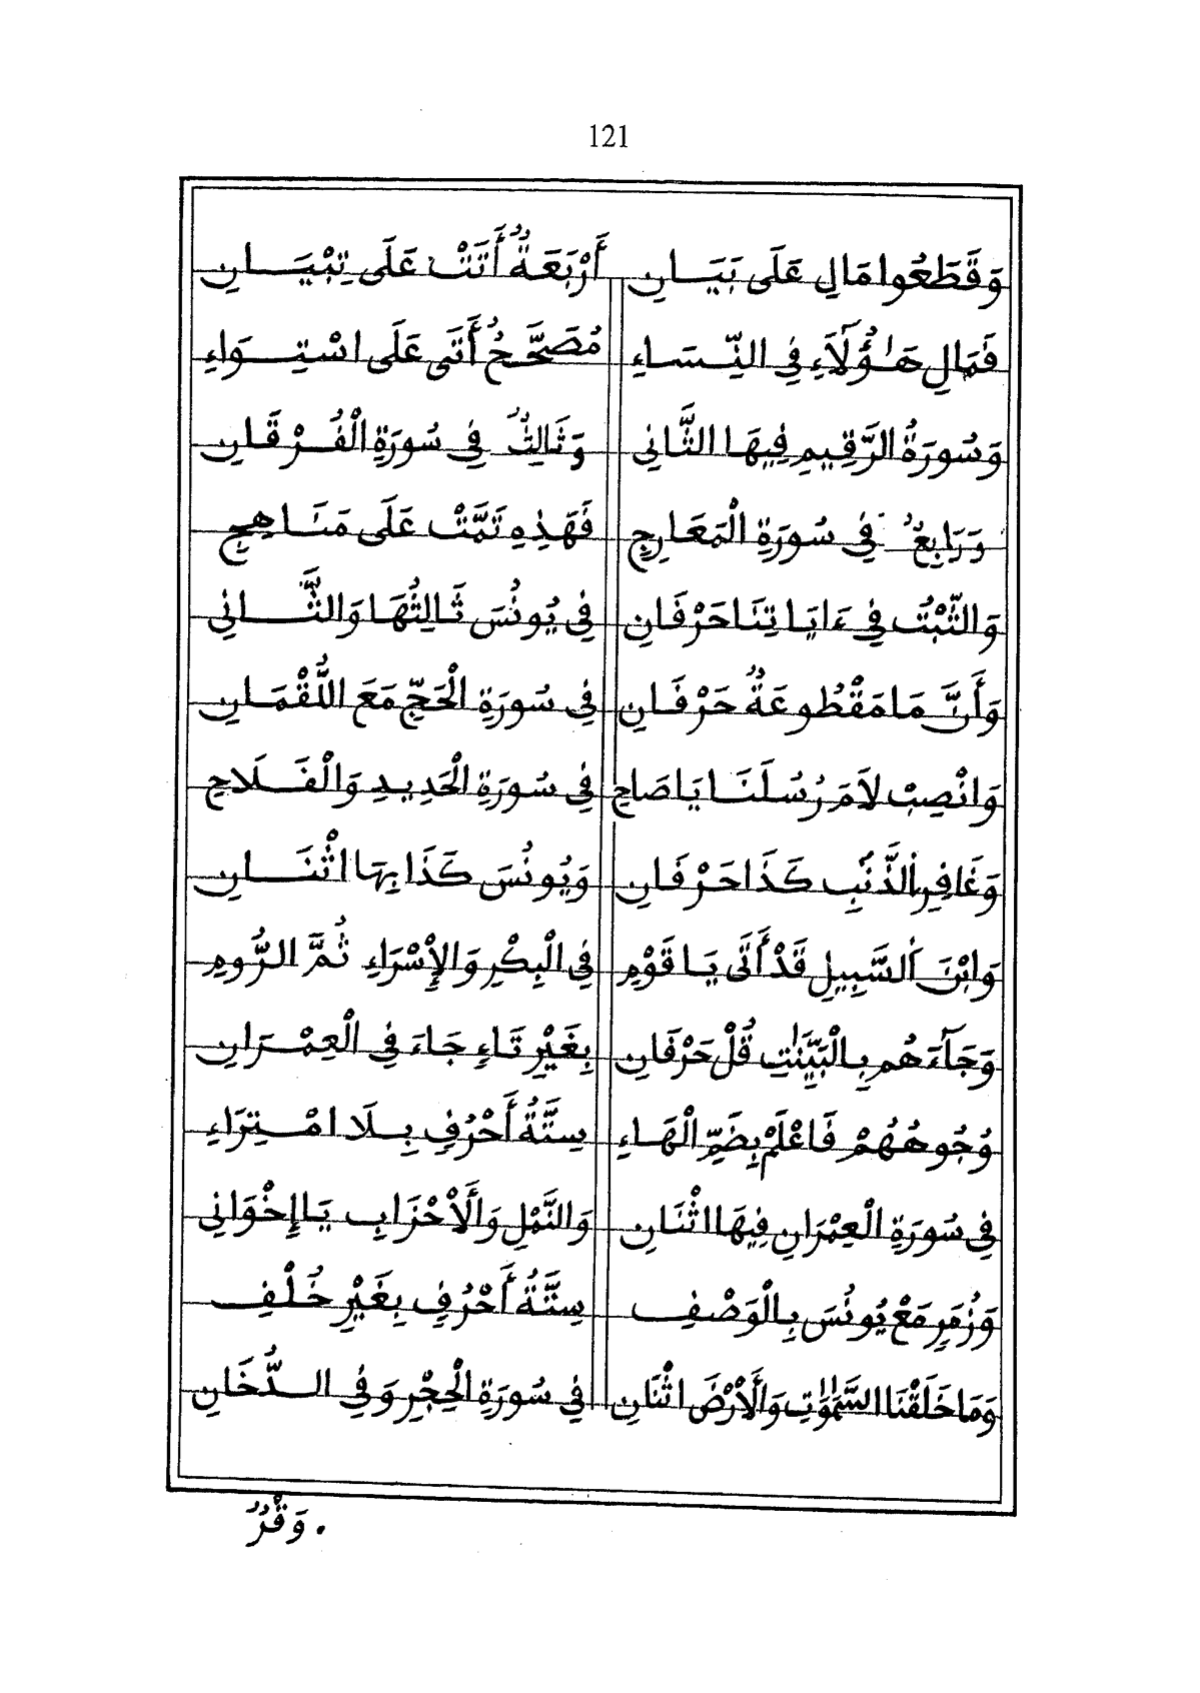 121
وَقَطَعُوا مَالِ عَلَى بَيَــانِ أَرْبَعَةٌ أَتَتْ عَلَى تِبْيَــانِ
فَمَالِ هَٰؤُلَآءِ فِي النِّــسَاءِ مُصَحَّحٌ أَتَى عَلَى اسْتِــوَاءِ
وَسُورَةُ الرَّقِيمِ فِيهَا الثَّانِي وَثَالِثٌ فِي سُورَةِ الْفُرْقَانِ
وَرَابِعٌ فِي سُورَةِ الْمَعَارِجِ فَهَذِهِ تَمَّتْ عَلَى مَنَاهِجِ
وَالثَّبْتُ فِي ءَايَاتِنَا حَرْفَانِ فِي يُونُسَ ثَالِثُهَا وَالثَّــانِي
وَأَنَّ مَا مَقْطُوعَةٌ حَرْفَانِ فِي سُورَةِ الْحَجِّ مَعَ اللُّقْمَانِ
وَانْصِبْ لاَمَ رُسُلَنَا يَا صَاحِ فِي سُورَةِ الْحَدِيدِ وَالْفَــلَاحِ
وَغَافِرِ الذَّنْبِ كَذَا حَرْفَانِ وَيُونُسَ كَذَا بِهَا اثْنَــانِ
وَابْنَ السَّبِيلِ قَدْ أَتَى يَا قَوْمِ فِي الْبِكْرِ وَالإِسْرَاءِ ثُمَّ الرُّومِ
وَجَآءَهُم بِالْبَيِّنَٰتِ قُلْ حَرْفَانِ بِغَيْرِ تَاءٍ جَاءَ فِي الْعِمْــرَانِ
وُجُوهُهُمْ فَاعْلَمْ بِضَمِّ الْهَاءِ سِتَّةُ أَحْرُفٍ بِــلَا امْــتِرَاءِ
فِي سُورَةِ الْعِمْرَانِ فِيهَا اثْنَانِ وَالنَّمْلِ وَالْأَحْزَابِ يَا إِخْوَانِي
وَزُمَرٍ مَعْ يُونُسَ بِالْوَصْفِ سِتَّةُ أَحْرُفٍ بِغَيْرِ خُلْفِ
وَمَا خَلَقْنَا السَّمَٰوَٰتِ وَالْأَرْضَ اثْنَانِ فِي سُورَةِ الْحِجْرِ وَفِي الــدُّخَانِ
. وَقْرٌ